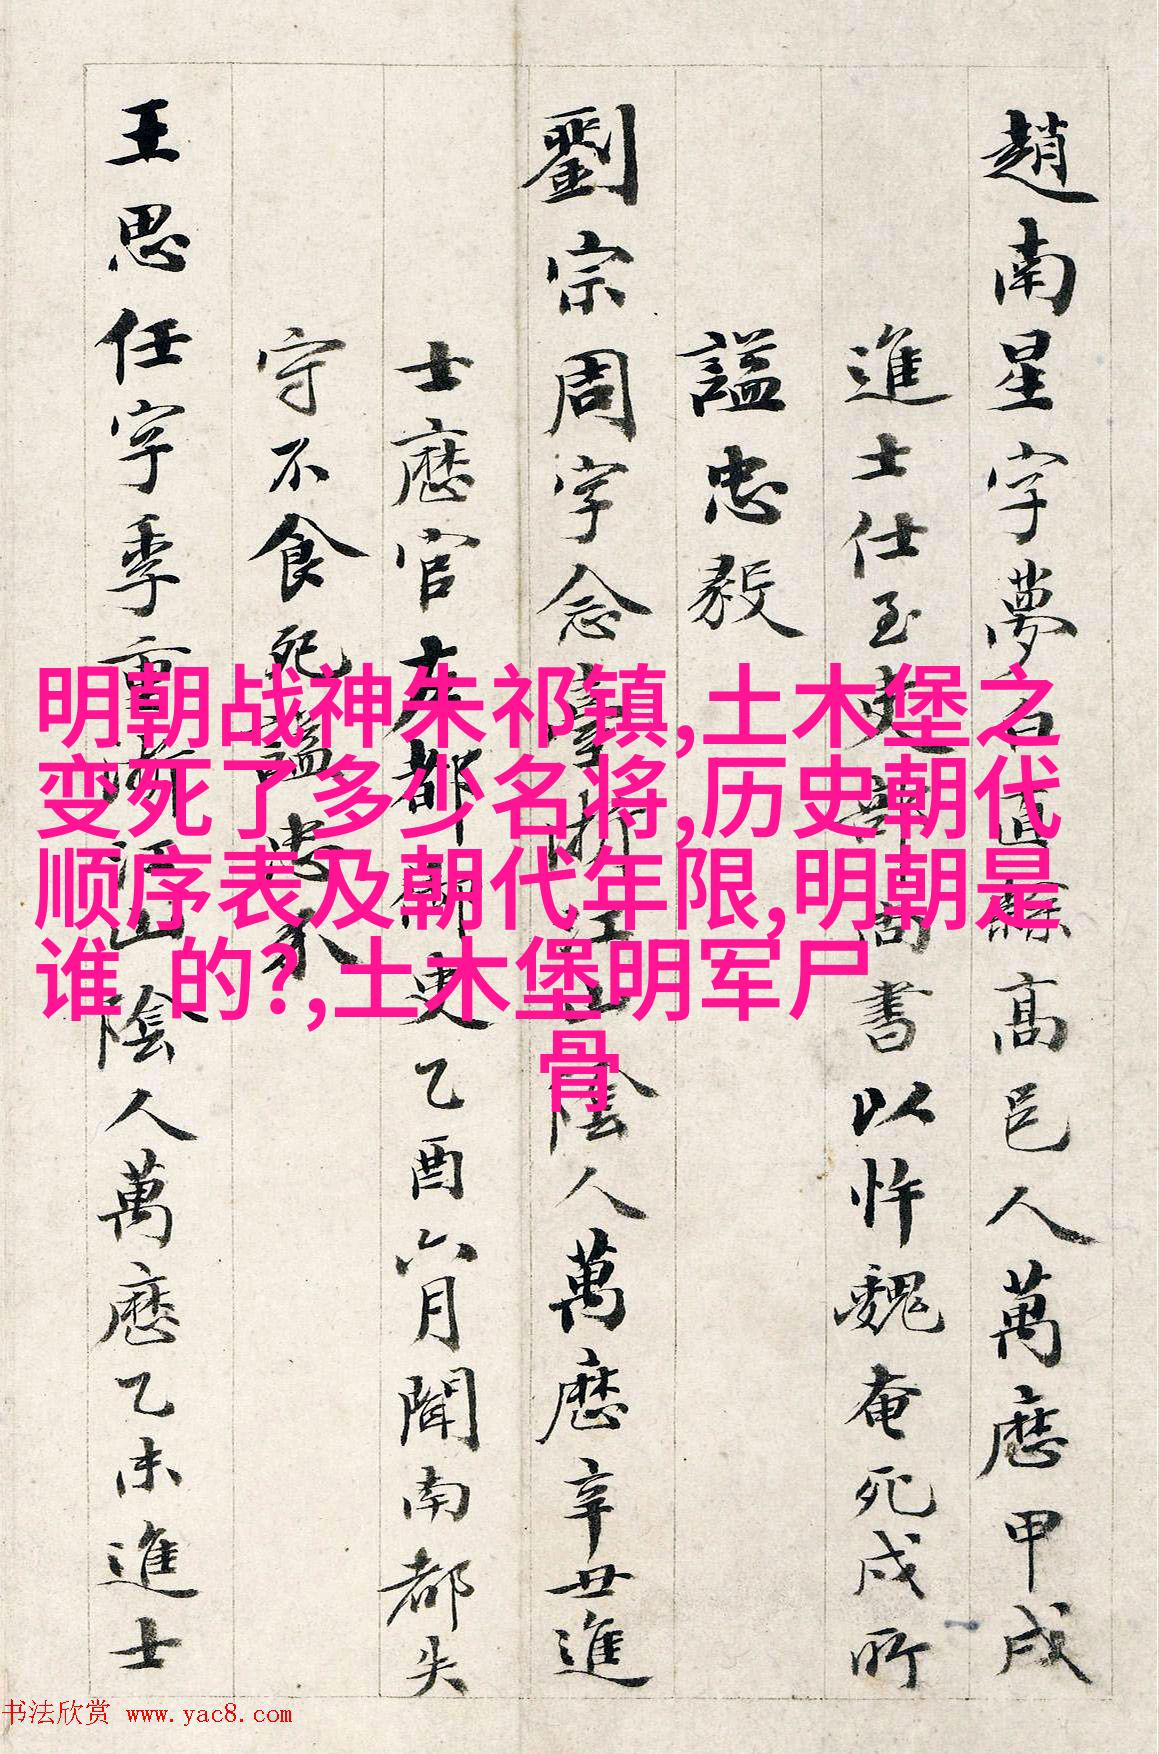 趙南星字夢白直隸高邑人萬曆甲戌
進士仕至吏部尚書以忤魏奄死戍所
諡忠毅
劉宗周字念臺浙江山陰人萬曆辛丑進
士歷官左都御史乙酉六月聞南都失
守不食死諡忠介
王思任字季重浙江山陰人萬曆乙未進士
明朝战神朱祁镇,土木堡之
变死了多少名将,历史朝代
顺序表及朝代年限,明朝是
谁 的?,土木堡明军尸
骨
书法欣赏 www.yac8.com